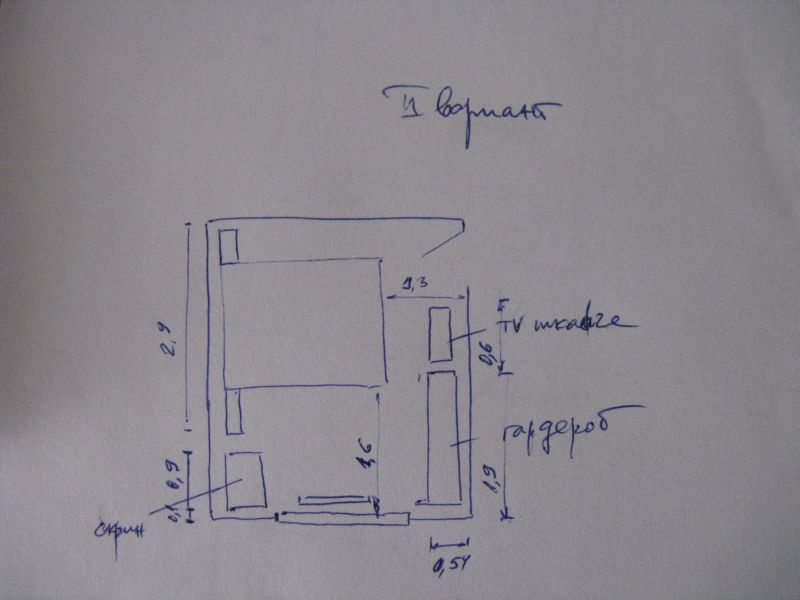 II вариант
1,3
TV шкафче
2,9
0,6
гардероб
1,6
0,9
1,9
0,1
скрин
0,54